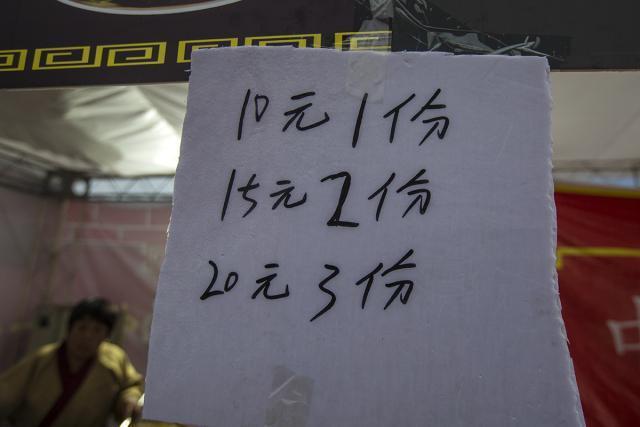 10元1份
15元2份
20元3份